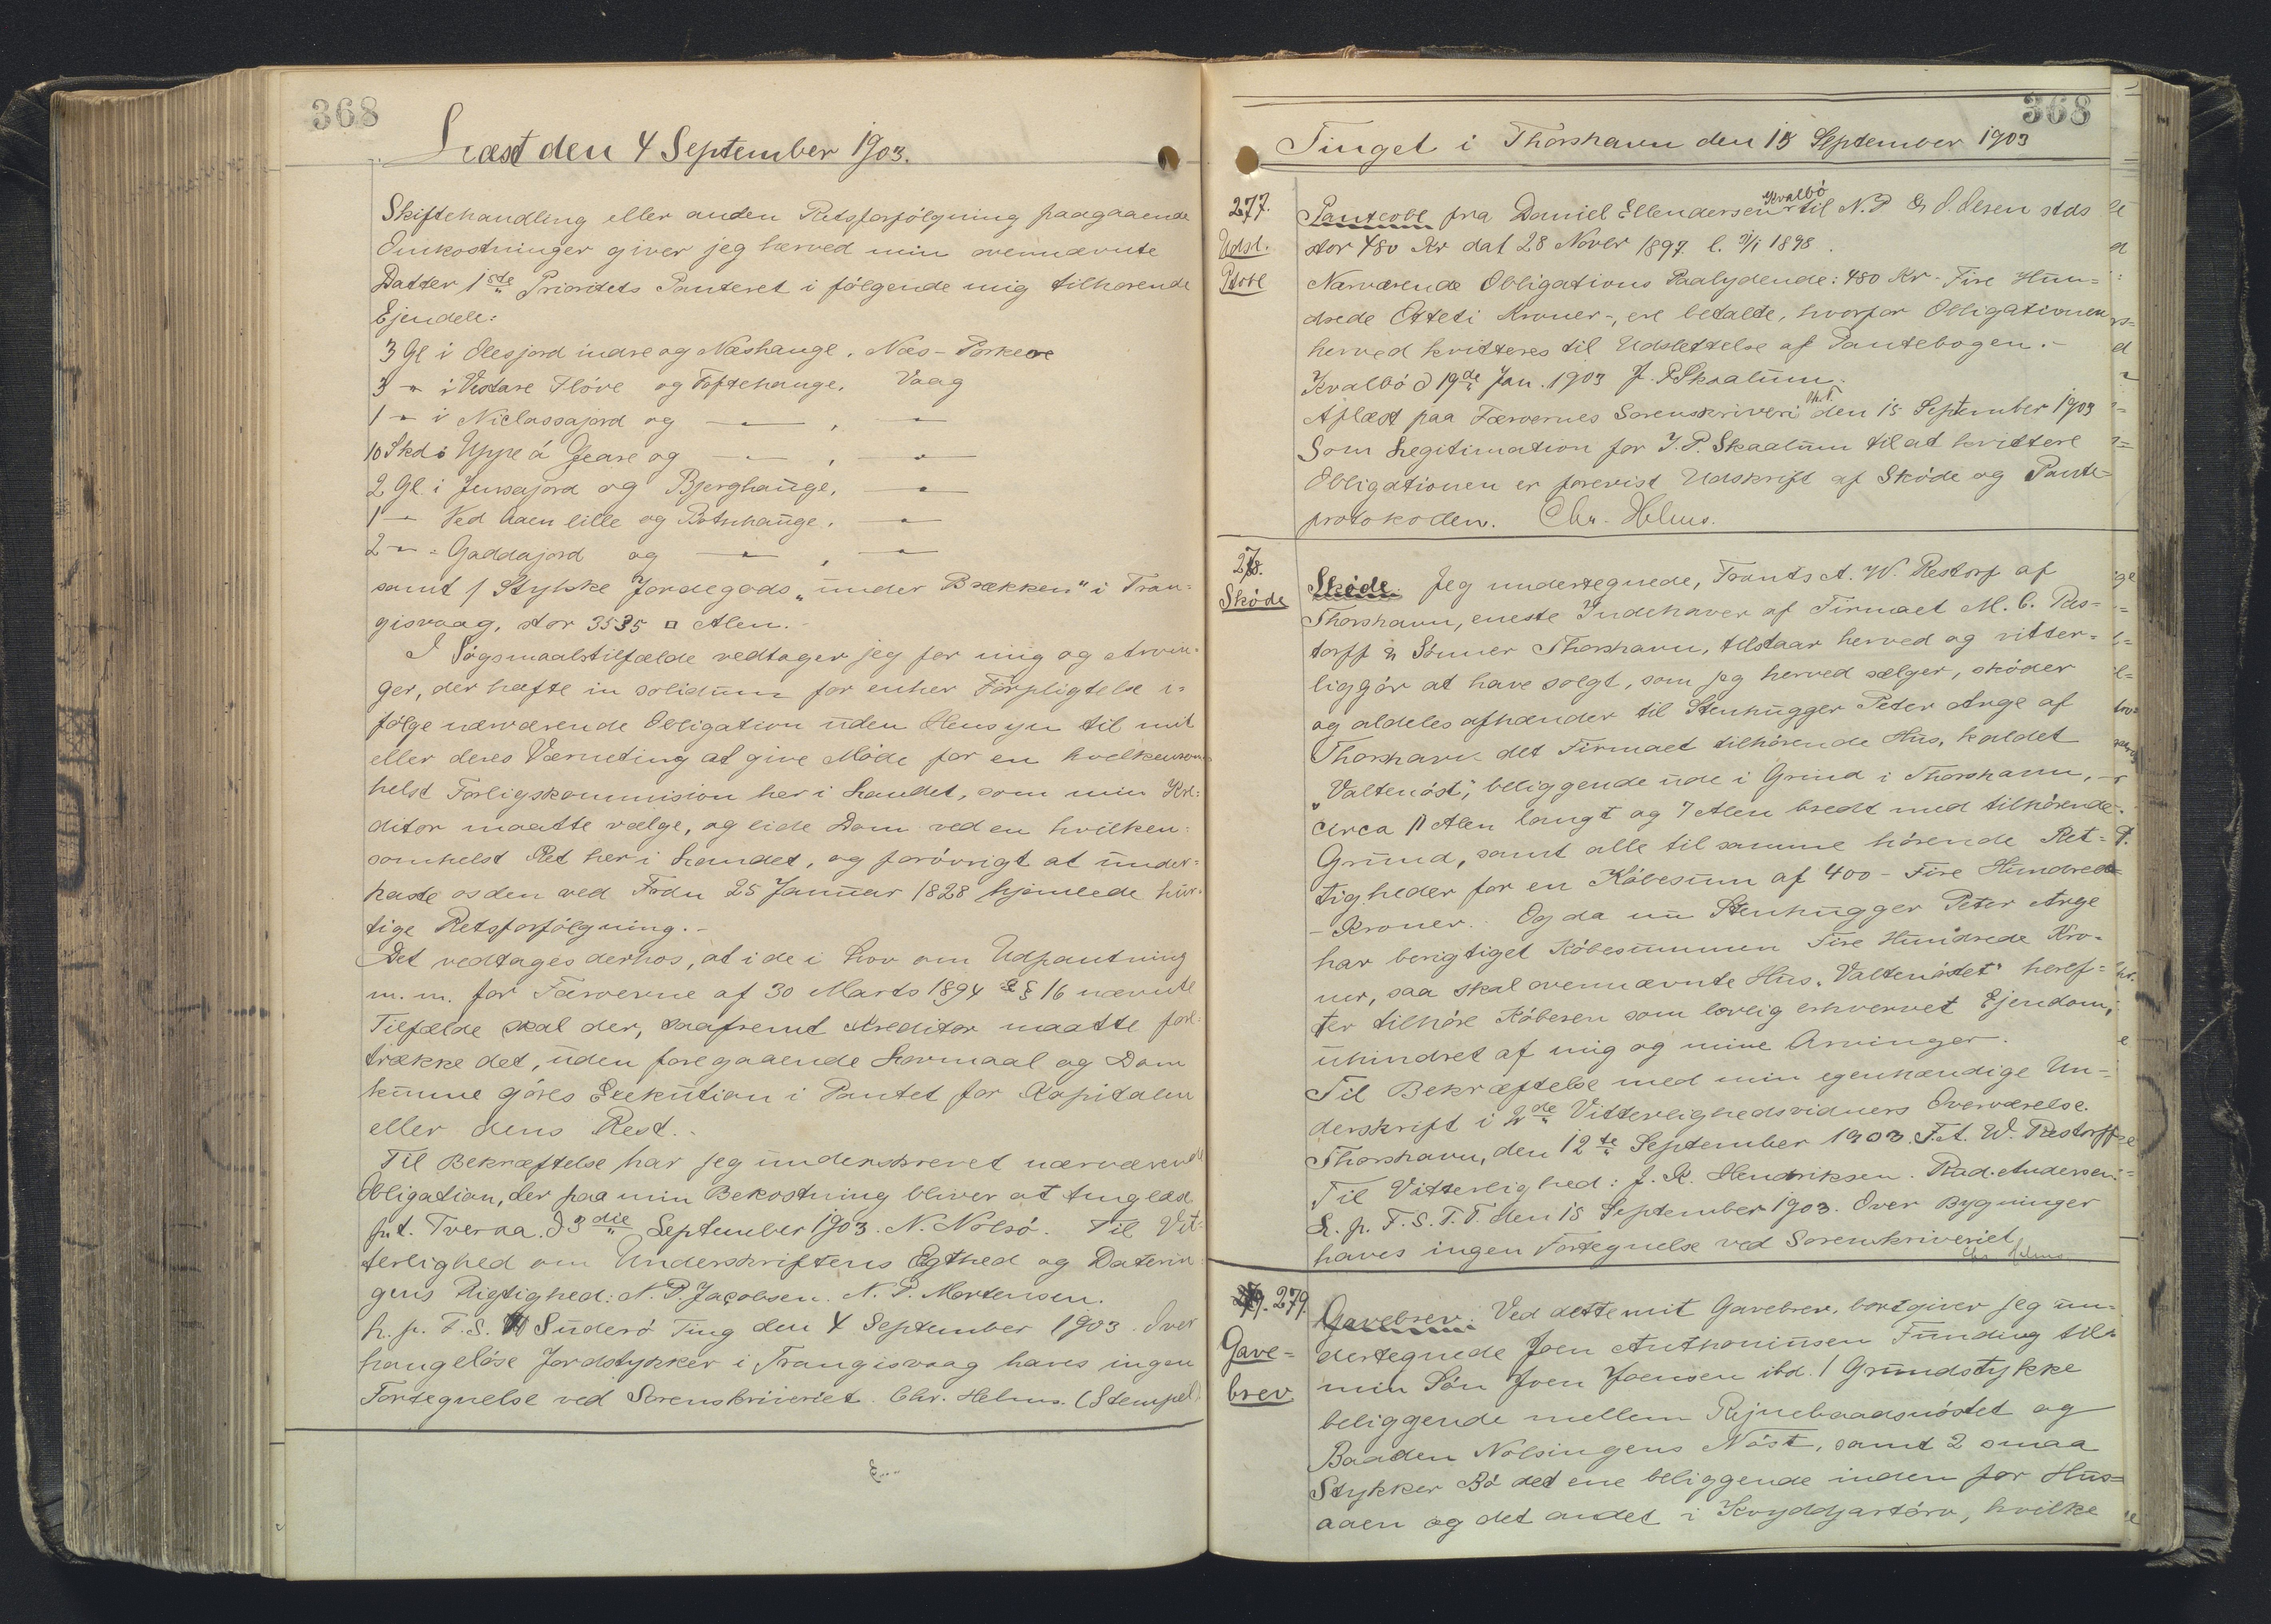 368
Læst den 4 September 1903.
Skiftehandling eller anden Retsforfölgning paagaaende
Omkostninger giver jeg herved min ovennævnte
Datter 1ste Prioritets Panteret i fölgende mig tilhørende
Ejendele:
3 Gl i Olesjord indre og Næshauge, Næs - Porkere
3 - i Vestare Flöve og Toftehauge, Vaag
1 - i Niclassajord og - , -
10 Skd i Uppe á Gjeare og - , -
2 Gl. i Jensajord og Bjerghauge, -
1 - Ved Aaen lille og Botnhauge, -
2 - - Gaddajord og - , -
samt 1 Stykke Jordegods "under Brækken" i Tran-
gisvaag, stor 3535 □ Alen.-
I Sögsmaalstilfælde vedtager jeg for mig og Arvin-
ger, der hæfte in solidum for enhver Förpligtelse i-
fölge nærværende Obligation uden Hensyn til mit
eller deres Værneting at give Möde for en hvilkensom
helst Forligskommission her i Landet, som min Kre-
ditor maatte vælge, og lide Dom ved en hvilken-
somhelst Ret her i Landet, og forövrigt at under-
kaste os den ved Frdn 25 Januar 1828 hjemlede hur-
tige Retsforfölgning.-
Det vedtages derhos, at i de i Lov om Udpantning
m. m. for Færøerne af 30 Marts 1894 § 16 nævnte
Tilfælde skal der, saafremt Kreditor maatte fore-
trække det, uden foregaaende Lovmaal og Dom
kunne göres Exekution i Pantet for Kapitalen
eller dens Rest.-
Til Bekræftelse har jeg underskrevet nærværende
Obligation, der paa min Bekostning bliver at tinglæse
p.t. Tveraa. d 3die September 1903. N. Nolsö. Til Vit-
terlighed om Underskriftens Ægthed og Daterin
gens Rigtighed: N. P. Jacobsen. N. P. Mortensen.
L. p. F. S. Suderö Ting den 4 September 1903. Over
haugelöse Jordstykker i Trangisvaag haves ingen
Fortegnelse ved Sorenskriveriet. Chr. Helms. (Stempel)
368
Tinget i Thorshavn den 15 September 1903
277.
Udsl.
Ptobl
Pantobl fra Daniel Ellendersen Kvalbö til N. P & O. Olsen stds
stor 480 Kr dat 28 Novbr 1897. l. 3/1 1898.
Nærværende Obligations Paalydende: 480 Kr - Fire Hun-
drede Otteti Kroner -, ere betalte, hvorfor Obligationen
herved kvitteres til Udslettelse af Pantebogen.-
Kvalbö d 19de Jan. 1903 J. P Skaalum.
Aflæst paa Færøernes Sorenskriveri Th. T. den 15 September 1903
Som Legitimation for J. P. Skaalum til at kvittere
Obligationen er forevist Udskrift af Sköde og Pante-
protokollen. Chr. Helms.
278.
Sköde
Sköde. Jeg undertegnede, Frants A. W. Restorf af
Thorshavn, eneste Indehaver af Firmaet M. C. Res-
torff & Sönner Thorshavn, tilstaar herved og vitter-
liggör at have solgt, som jeg herved sælger, sköder
og aldeles afhænder til Stenhugger Peter Arge af
Thorshavn det Firmaet tilhörende Hus, kaldet
"Valtenöst", beliggende ude i Grind i Thorshavn,
circa 11 Alen langt og 7 Alen bredt med tilhörende
Grund, samt alle til samme hörende Ret-
tigheder for en Köbesum af 400 - Fire Hundrede
- Kroner. Og da nu Stenhugger Peter Arge
har berigtiget Köbesummen Fire Hundrede Kro-
ner, saa skal ovennævnte Hus "Valtenöstet" heref-
ter tilhöre Köberen som lovlig erhvervet Ejendom,
uhindret af mig og mine Arvinger.
Til Bekræftelse med min egenhændige Un-
derskrift i 2de Vitterlighedsvidners Overværelse.
Thorshavn, den 12te September 1903. F. A. W. Restorff
Til Vitterlighed: J. R. Hendriksen. Rad. Andersen
L. p. F. S. T. T. den 15 September 1903. Over Bygninger
haves ingen Fortegnelse ved Sorenskriveriet
Chr Helms
279.
Gave-
brev
Gavebrev. Ved dette mit Gavebrev, bortgiver jeg un-
dertegnede Joen Anthoniusen Funding til
min Sön Joen Joensen ibd. 1 Grundstykke
beliggende mellem Rejnebaadsnöstet og
Baaden Nolsingens Nöst, samt 2 smaa
Stykker Bö det ene beliggende inden for Hus-
aaen og det andet i Kvyddjartörv, hvilke